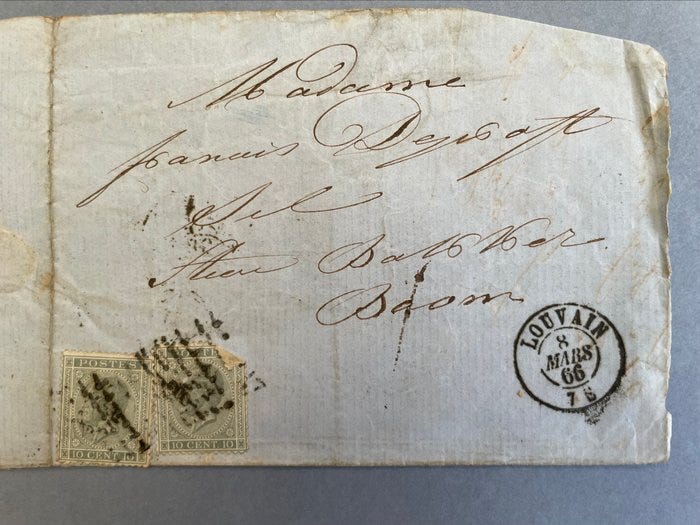 Madame
francis
Steen Bakker
Boom
LOUVAIN
8
MARS
66
7 S
POSTES
10 CENT
10 CENT 10